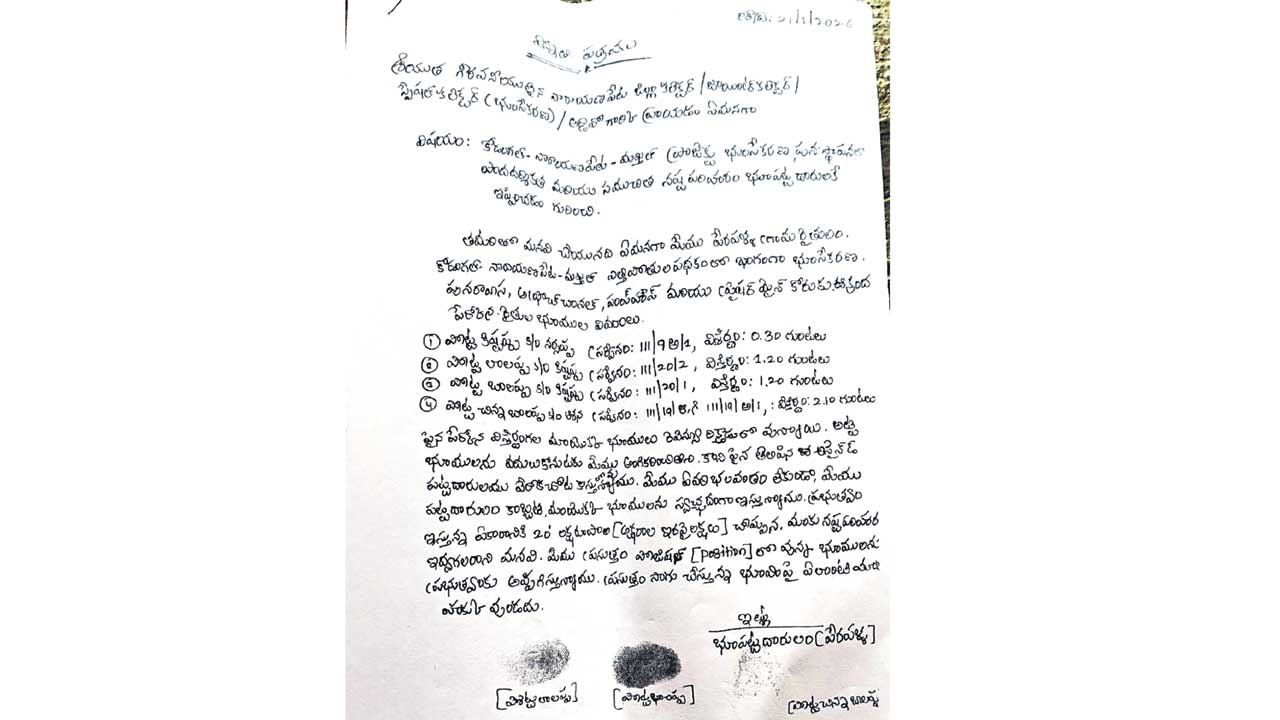 తేది: 21/1/2026
విన్నపి పత్రము
శ్రీయుత గౌరవనీయులైన నారాయణపేట జిల్లా కలెక్టర్/జాయింట్ కలెక్టర్/
స్పెషల్ కలెక్టర్ (భూసేకరణ)/ఆర్డిఓ గారికి వ్రాయడం ఏమనగా
విషయం: కోడంగల్-నారాయణపేట-మక్తల్ ప్రాజెక్టు భూసేకరణ, పున:స్థాపనలో
పారదర్శికత మరియు సముచిత నష్ట పరిహారం భూపట్టదారులకే
ఇప్పించడం గురించి.
తమరితో మనవి చేయునది ఏమనగా మేము పేరపళ్ళ గ్రామ రైతులం.
కోడంగల్-నారాయణపేట-మక్తల్ ఎత్తిపోతల పథకంలో భాగంగా భూసేకరణ.
పునరావాస, అప్రోచ్ చానల్, పంప్‌హౌస్ మరియు ప్రెషర్ మైన్ కొరకు, ఈ క్రింద
పేర్కొన్న రైతుల భూముల వివరాలు.
① పోట్ట కిష్టప్ప S/o నర్సప్ప (సర్వేనం: 111/9అ/1, విస్తీర్ణం: 0.30 గుంటలు
② పోట్ట లాలప్ప S/o కిష్టప్ప (సర్వేనం: 111/20/2, విస్తీర్ణం: 1.20 గుంటలు
③ పోట్ట బాలప్ప S/o కిష్టప్ప (సర్వేనం: 111/20/1, విస్తీర్ణం: 1.20 గుంటలు
④ పోట్ట చిన్న బాలప్ప S/o (సర్వేనం: 111/19/ఆ, 111/19/అ/1, : విస్తీర్ణం: 2.10 గుంటలు
పైన పేర్కొన్న విస్తీర్ణంగల మాయొక్క భూములు రెవిన్యూ రికార్డులో వున్నాయి. అట్టి
భూములను వదులుకొనుటకు మేము అంగీకరించితిమి. కాని పైన తెలిపిన అసైన్డ్
పట్టదారులము వేరొకచోట కాస్తున్నాము. మేము ఏవరి బలవంతం లేకుండా, మేము
పట్టదారులం కాబట్టి, మాయొక్క భూములను స్వచ్ఛదంగా ఇస్తున్నాము. ప్రభుత్వం
ఇస్తున్న ఏకారానికి 20 లక్షరూపాల [అక్షరాల ఇరవైలక్షలు] చొప్పున, మాకు నష్టపరిహార
ఇవ్వగలరాని మనవి. మేము ప్రసుత్తం పొజిషన్ [position] లో వున్న భూములను
ప్రభుత్వాంకు అప్పగిస్తున్నాము. ప్రసుత్తం సాగు చేస్తున్న భూమిపై ఏలాంటి
హాక్కు వుండదు.
ఇట్లు
భూపట్టదారులం [పేరపళ్ళ]
[పోట్ట లాలప్ప] [పోట్ట బాలప్ప] [పోట్ట చిన్న బాలప్ప